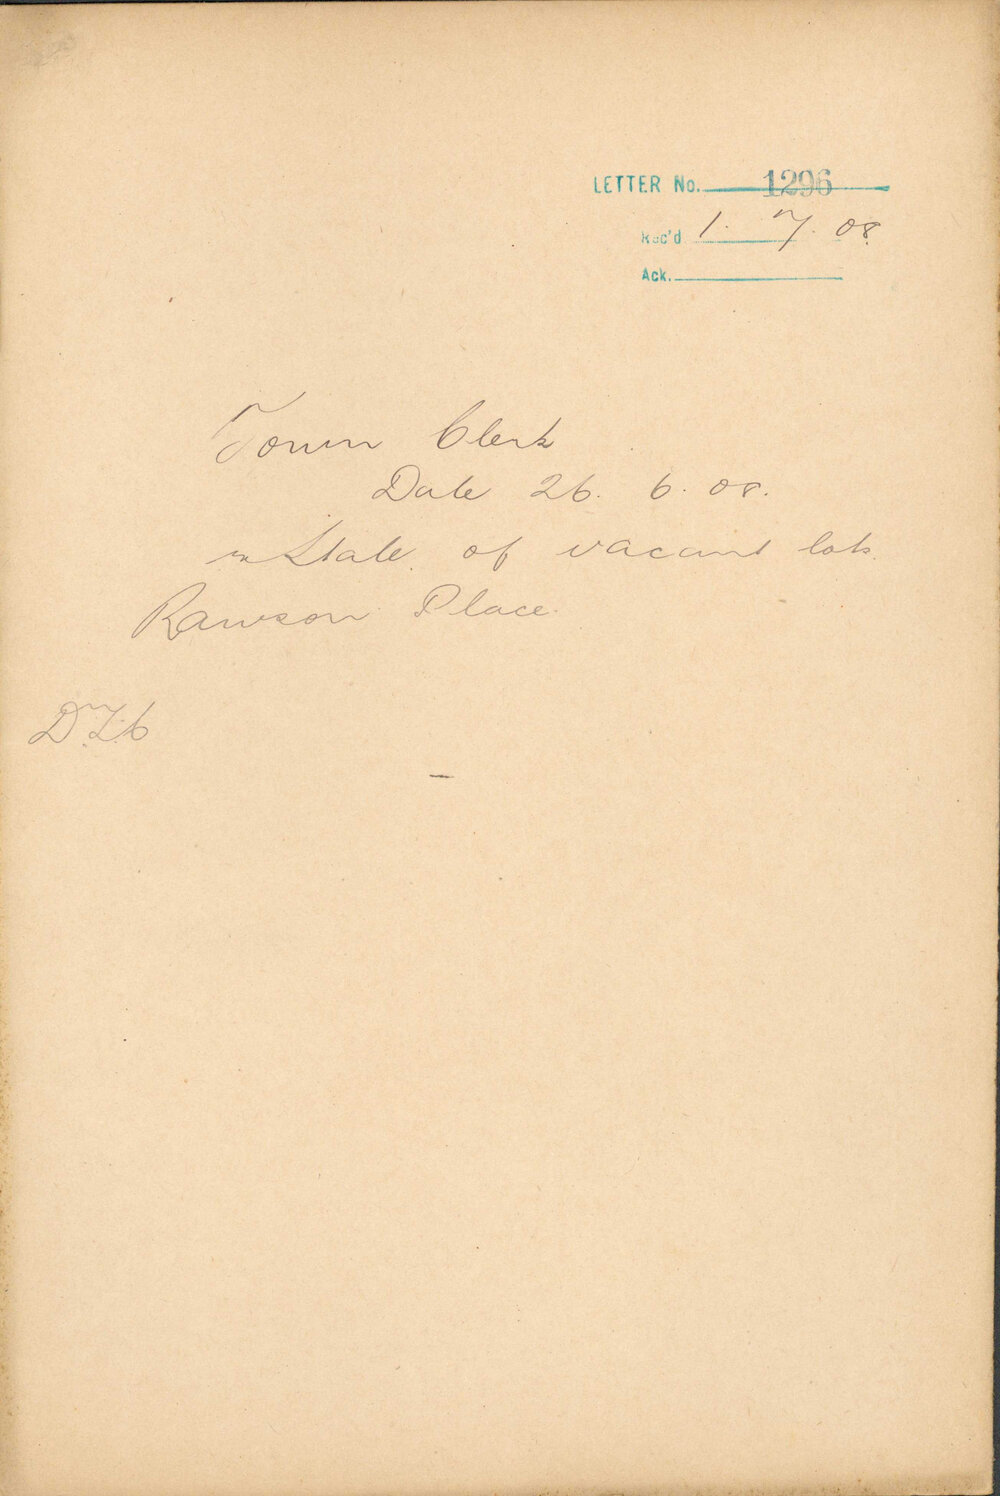 LETTER No. 1296
Rec'd 1. 7. 08.
Ack.
Town Clerk
Date 26. 6. 08.
re State of vacant lots
Rawson Place